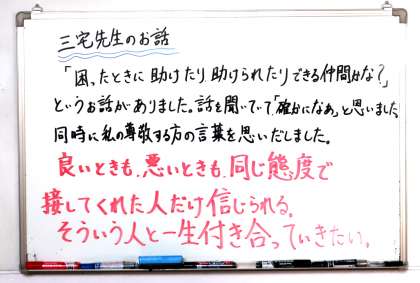 三宅先生のお話
「困ったときに助けたり助けられたりできる仲間かな?」
というお話がありました。話を聞いていて「確かになあ」と思いました。
同時に私の尊敬する方の言葉を思いだしました。
良いときも、悪いときも、同じ態度で
接してくれた人だけ信じられる。
そういう人と一生付き合っていきたい。